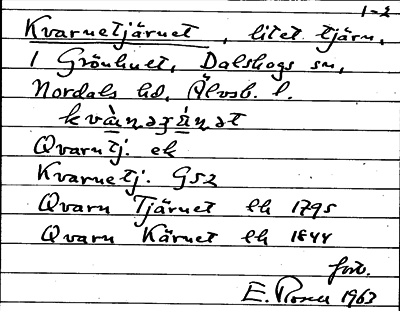 1-2
Kvarnetjärnet, litet tjärn,
i Grönhult, Dalskogs sn,
Nordals hd, Älvsb. l.
Qvarntj. ek
Kvarnetj. G52
Qvarn Tjärnet lh 1795
Qvarn Kärnet lh 1844
fort.
E. 1963